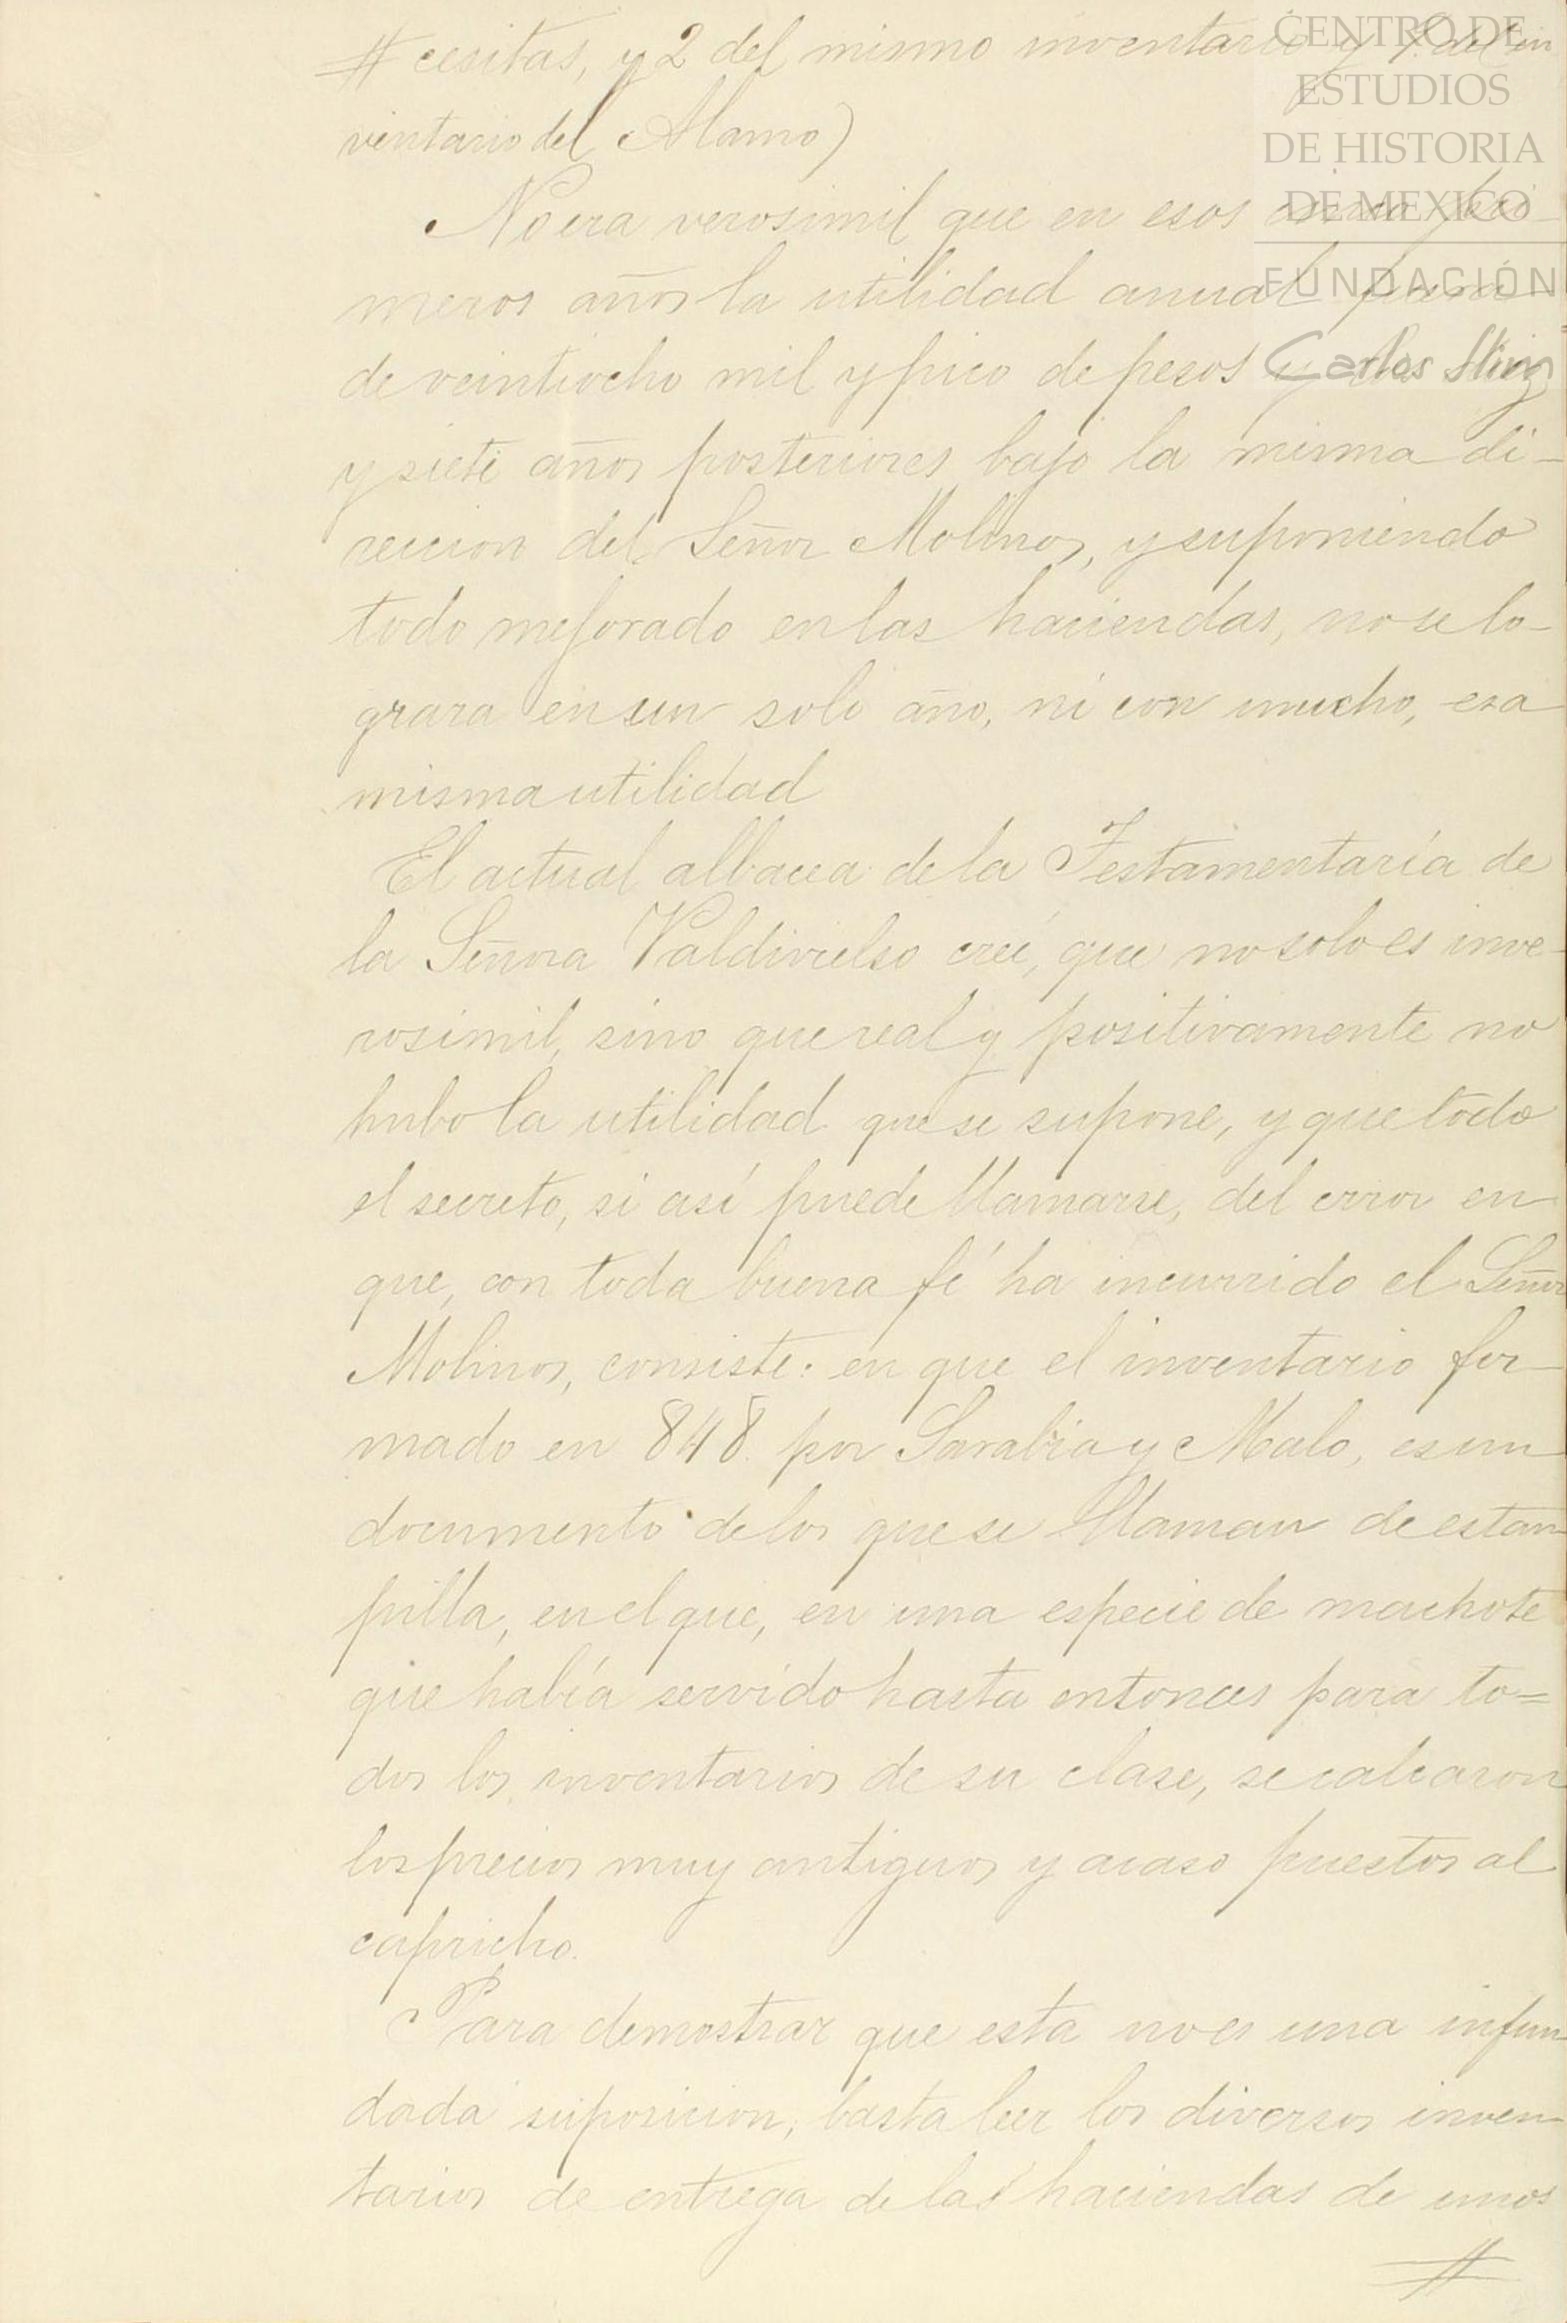 # cesitas, y 2 del mismo inventario y
CENTRO DE
ESTUDIOS
DE HISTORIA
DE MEXICO
FUNDACIÓN
Carlos Slim
ventario del Alamo)
No era verosimil que en esos cinco pri
meros años la utilidad anual fuera
de veintiocho mil y pico de pesos y
y siete años posteriores bajo la misma di-
reccion del Señor Molinos, y suponiendo
todo mejorado en las haciendas, no se lo-
grara en un solo año, ni con mucho, esa
misma utilidad
El actual albacea de la Testamentaría de
la Señora Valdivielso creé, que no solo es inve-
rosimil, sino que real y positivamente no
hubo la utilidad que se supone, y que todo
el secreto, si así puede llamarse, del error en
que, con toda buena fé ha incurrido el Señor
Molinos, consiste: en que el inventario for
mado en 848. por Sarabia y Malo, es un
documento de los que se llaman de estam
pilla, en el que, en una especie de machote
que había servido hasta entonces para to=
dos los inventarios de su clase, se calcaron
los precios muy antiguos y acaso puestos al
capricho.
Para demostrar que esta no es una infun
dada suposicion, basta leer los diversos inven-
tarios de entrega de las haciendas de unos
#